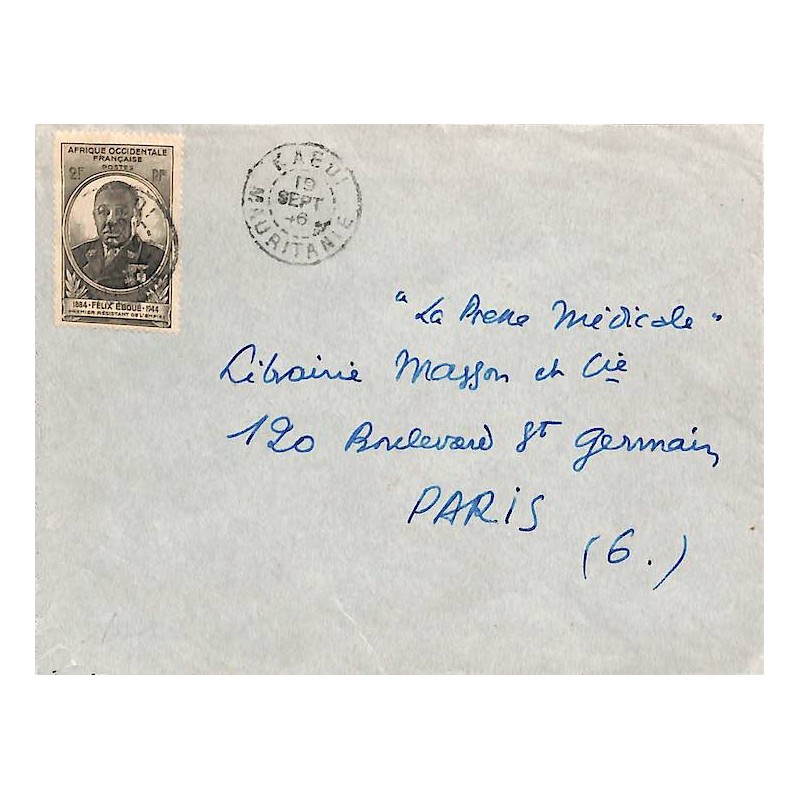 AFRIQUE OCCIDENTALE
FRANÇAISE
POSTES
2F RF
1884 · FÉLIX ÉBOUÉ · 1944
PREMIER RÉSISTANT DE L'EMPIRE
KAEDI
19
SEPT
46
MAURITANIE
"La Presse Médicale"
Librairie Masson et Cie
120 Boulevard St Germain
PARIS
(6.)